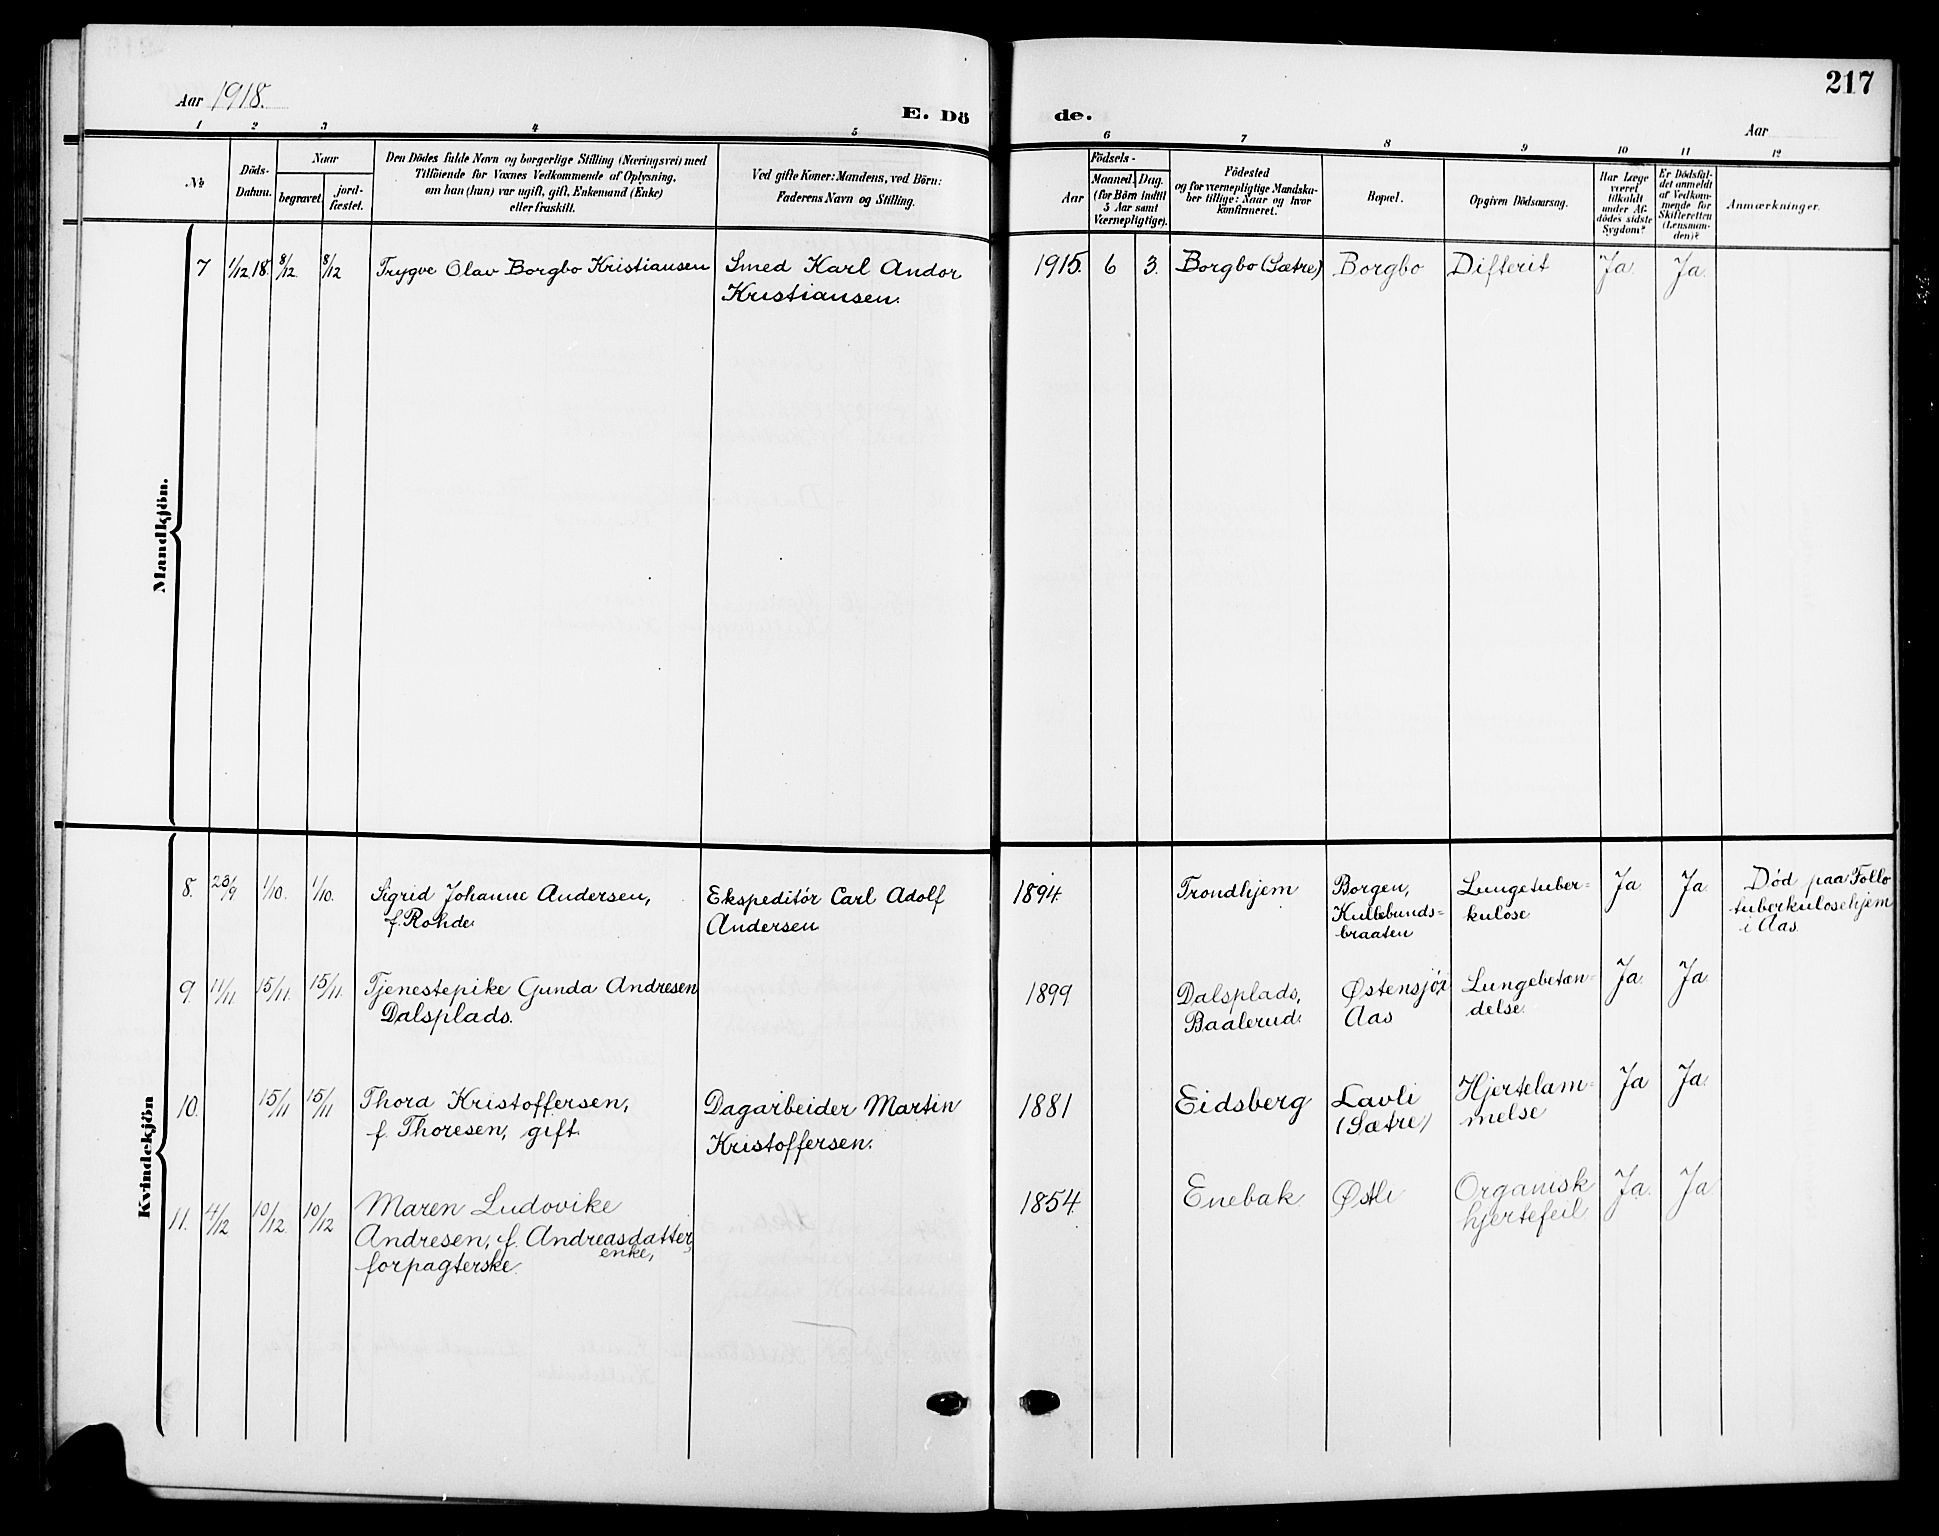 217
Aar 1918.
E. Dö de.
Aar
1 2 3 4 5 6 7 8 9 10 11 12
No
Döds-
Datum.
Naar
begravet.
jord-
fæstet.
Den Dödes fulde Navn og borgerlige Stilling (Næringsvei) med
Tilföiende for Voxnes Vedkommende af Oplysning,
om han (hun) var ugift, gift, Enkemand (Enke)
eller fraskilt.
Ved gifte Koner: Mandens, ved Börn:
Faderens Navn og Stilling.
Födsels-
Aar
Maaned. Dag.
(for Börn indtil
5 Aar samt
Værnepligtige).
Födested
og for værnepligtige Mandska-
ber tillige: Naar og hvor
konfirmeret.
Bopæl.
Opgiven Dödsaarsag.
Har Læge
været
tilkaldt
under Af-
dödes sidste
Sygdom?
Er Dödsfal-
det anmeldt
af Vedkom-
mende for
Skifteretten
(Lensman-
den)?
Anmærkninger.
Mandkjön.
7 1/12 18. 8/12 8/12 Trygve Olav Borgbo Kristiansen Smed Karl Andor
Kristiansen.
1915. 6 3. Borgbo (Sætre) Borgbo Difterit Ja. Ja.
Kvindekjön
8. 28/9 1/10. 1/10. Sigrid Johanne Andersen,
f. Rohde.
Ekspeditör Carl Adolf
Andersen
1894. Trondhjem
Borgen,
Kullebunds-
braaten
Lungetuber-
kulose
Ja Ja
Død paa Follo
tuberkulosehjem
i Aas.
9. 11/11 15/11. 15/11. Tjenestepike Gunda Andresen
Dalsplads.
1899
Dalsplads,
Baalerud.
Østensjø
Aas
Lungebetæn-
delse.
Ja. Ja.
10. 15/11 15/11 Thora Kristoffersen,
f. Thoresen, gift.
Dagarbeider Martin
Kristoffersen.
1881 Eidsberg
Lavli
(Sætre)
Hjertelam-
melse
Ja Ja.
11. 4/12 10/12. 10/12 Maren Ludovike
Andresen, f. Andreasdatter,
enke,
forpagterske.
1854. Enebak Østli
Organisk
hjertefeil
Ja. Ja